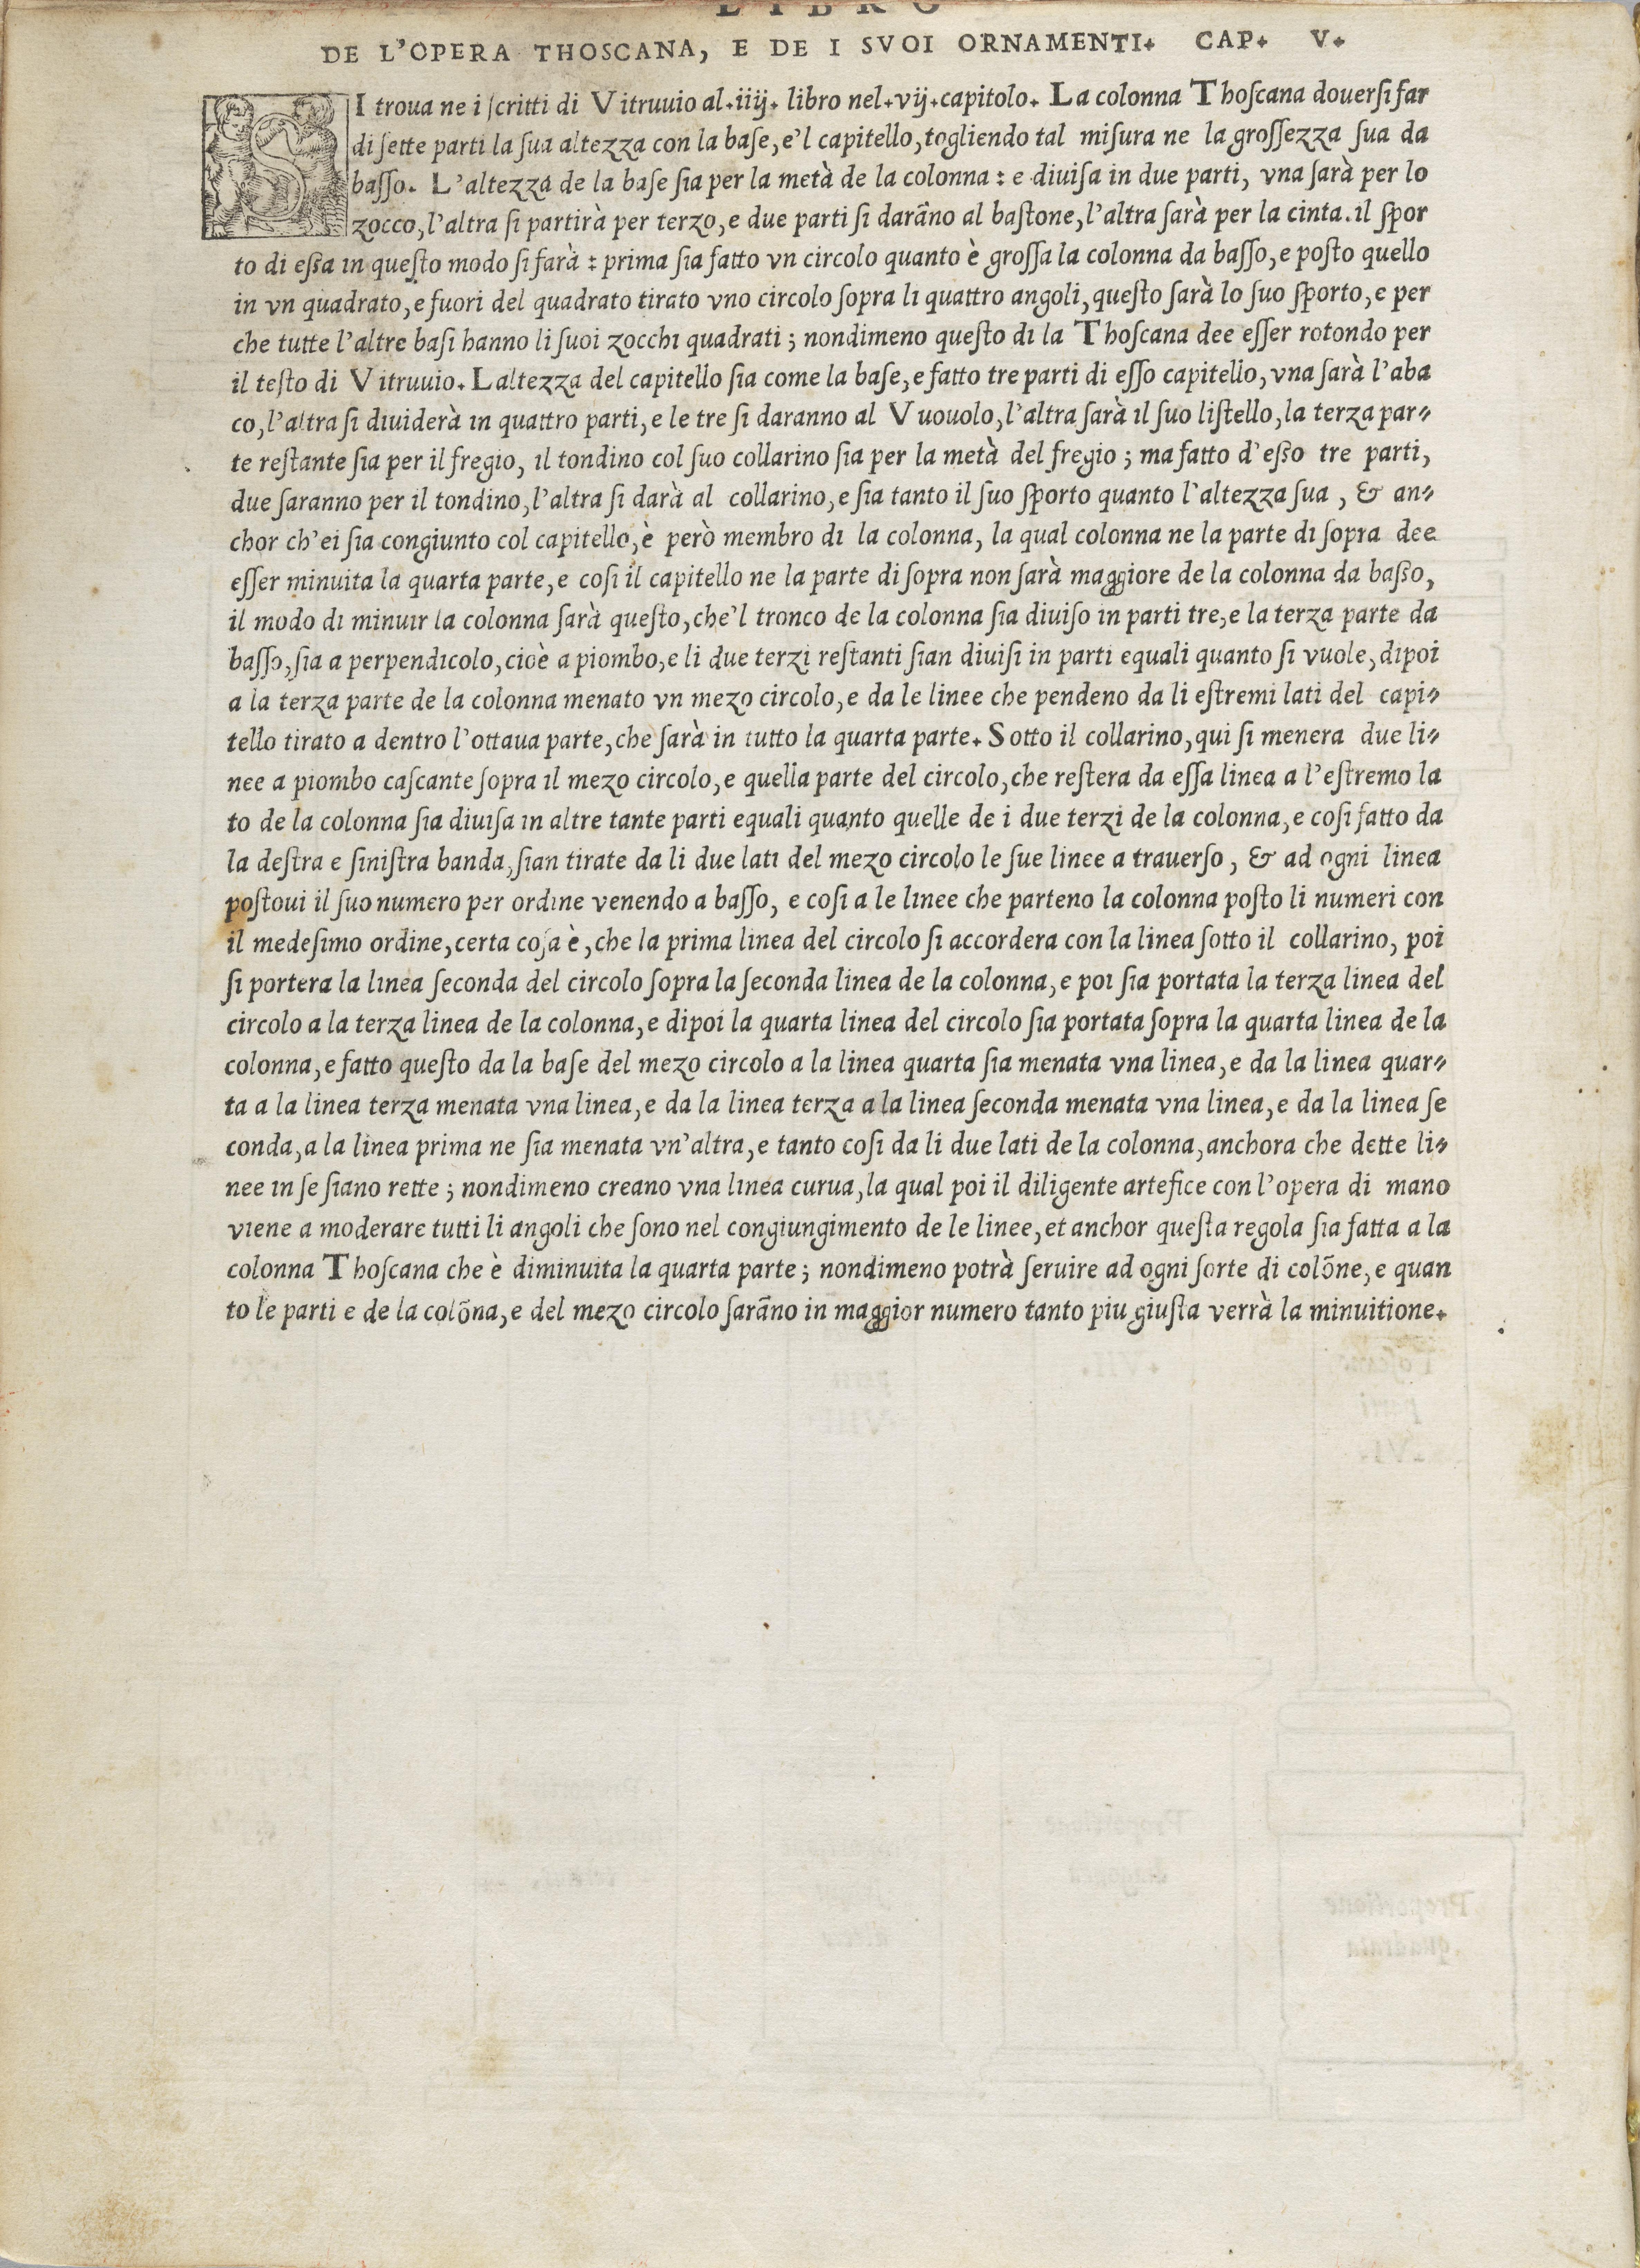 LIBRO
DE L'OPERA THOSCANA, E DE I SVOI ORNAMENTI. CAP. V.
SI troua ne i ſcritti di Vitruuio al.iiij. libro nel.vij.capitolo. La colonna Thoſcana douerſi far
di ſette parti la ſua altezza con la baſe, e'l capitello, togliendo tal miſura ne la groſſezza ſua da
baſſo. L'altezza de la baſe ſia per la metà de la colonna: e diuiſa in due parti, vna ſarà per lo
zocco, l'altra ſi partirà per terzo, e due parti ſi darãno al baſtone, l'altra ſarà per la cinta. il ſpor
to di eſſa in queſto modo ſi farà: prima ſia fatto vn circolo quanto è groſſa la colonna da baſſo, e poſto quello
in vn quadrato, e fuori del quadrato tirato vno circolo ſopra li quattro angoli, queſto ſarà lo ſuo ſporto, e per
che tutte l'altre baſi hanno li ſuoi zocchi quadrati; nondimeno queſto di la Thoſcana dee eſſer rotondo per
il teſto di Vitruuio. Laltezza del capitello ſia come la baſe, e fatto tre parti di eſſo capitello, vna ſarà l'aba
co, l'altra ſi diuiderà in quattro parti, e le tre ſi daranno al Vuouolo, l'altra ſarà il ſuo liſtello, la terza par-
te reſtante ſia per il fregio, il tondino col ſuo collarino ſia per la metà del fregio; ma fatto d'eſſo tre parti,
due ſaranno per il tondino, l'altra ſi darà al collarino, e ſia tanto il ſuo ſporto quanto l'altezza ſua, & an-
chor ch'ei ſia congiunto col capitello, è però membro di la colonna, la qual colonna ne la parte di ſopra dee
eſſer minuita la quarta parte, e coſi il capitello ne la parte di ſopra non ſarà maggiore de la colonna da baſſo,
il modo di minuir la colonna ſarà queſto, che'l tronco de la colonna ſia diuiſo in parti tre, e la terza parte da
baſſo, ſia a perpendicolo, cioè a piombo, e li due terzi reſtanti ſian diuiſi in parti equali quanto ſi vuole, dipoi
a la terza parte de la colonna menato vn mezo circolo, e da le linee che pendeno da li eſtremi lati del capi-
tello tirato a dentro l'ottaua parte, che ſarà in tutto la quarta parte. Sotto il collarino, qui ſi menera due li-
nee a piombo caſcante ſopra il mezo circolo, e quella parte del circolo, che reſtera da eſſa linea a l'eſtremo la
to de la colonna ſia diuiſa in altre tante parti equali quanto quelle de i due terzi de la colonna, e coſi fatto da
la deſtra e ſiniſtra banda, ſian tirate da li due lati del mezo circolo le ſue linee a trauerſo, & ad ogni linea
poſtoui il ſuo numero per ordine venendo a baſſo, e coſi a le linee che parteno la colonna poſto li numeri con
il medeſimo ordine, certa coſa è, che la prima linea del circolo ſi accordera con la linea ſotto il collarino, poi
ſi portera la linea ſeconda del circolo ſopra la ſeconda linea de la colonna, e poi ſia portata la terza linea del
circolo a la terza linea de la colonna, e dipoi la quarta linea del circolo ſia portata ſopra la quarta linea de la
colonna, e fatto queſto da la baſe del mezo circolo a la linea quarta ſia menata vna linea, e da la linea quar-
ta a la linea terza menata vna linea, e da la linea terza a la linea ſeconda menata vna linea, e da la linea ſe
conda, a la linea prima ne ſia menata vn'altra, e tanto coſi da li due lati de la colonna, anchora che dette li-
nee in ſe ſiano rette; nondimeno creano vna linea curua, la qual poi il diligente artefice con l'opera di mano
viene a moderare tutti li angoli che ſono nel congiungimento de le linee, et anchor queſta regola ſia fatta a la
colonna Thoſcana che è diminuita la quarta parte; nondimeno potrà ſeruire ad ogni ſorte di colõne, e quan
to le parti e de la colõna, e del mezo circolo ſarãno in maggior numero tanto piu giuſta verrà la minuitione.